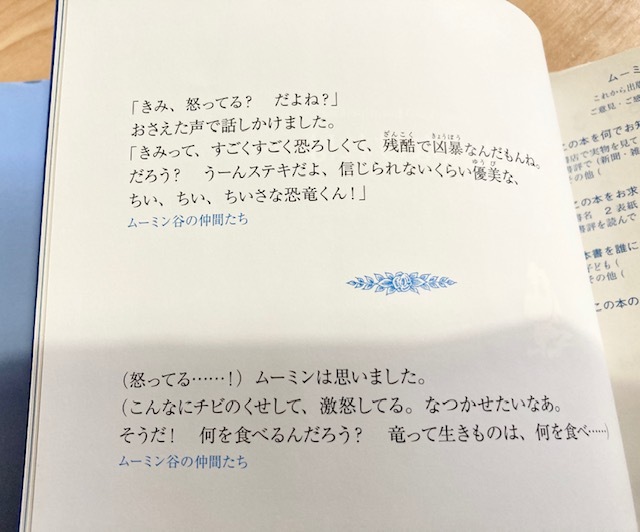 「きみ、怒ってる?　だよね?」
おさえた声で話しかけました。
「きみって、すごくすごく恐ろしくて、残酷で凶暴なんだもんね。
だろう?　うーんステキだよ、信じられないくらい優美な、
ちい、ちい、ちいさな恐竜くん!」
ムーミン谷の仲間たち
(怒ってる……!) ムーミンは思いました。
(こんなにチビのくせして、激怒してる。なつかせたいなあ。
そうだ!　何を食べるんだろう?　竜って生きものは、何を食べ……)
ムーミン谷の仲間たち
ムーミ
これから出版
ご意見・ご感
この本を何でお知
店で実物を見て
書評で(新聞・雑
の他(
この本をお求
名　2 表紙
書評を読んで
本書を誰に
子ども(
その他(
この本の